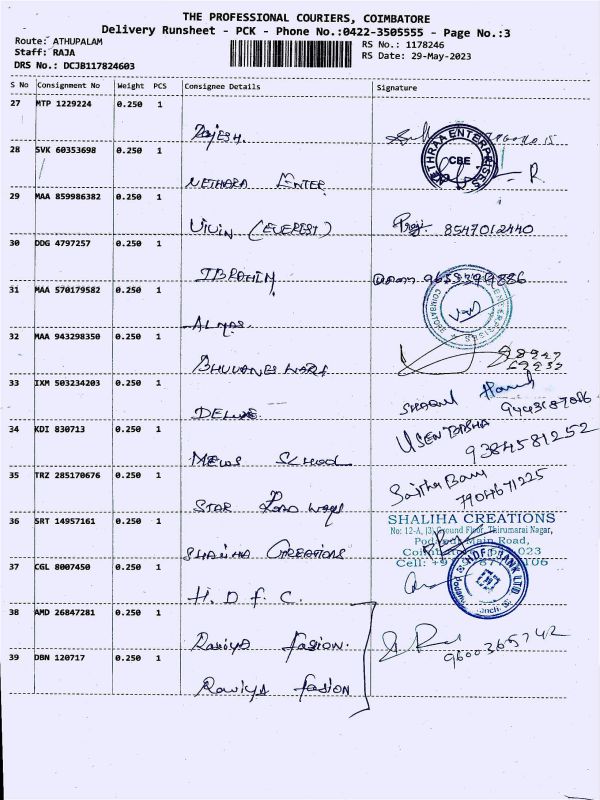 THE PROFESSIONAL COURIERS, COIMBATORE
Delivery Runsheet - PCK - Phone No.:0422-3505555 - Page No.:3
Route: ATHUPALAM
Staff: RAJA
DRS No.: DCJB117824603
RS No.: 1178246
RS Date: 29-May-2023
S No Consignment No Weight PCS Consignee Details Signature
27 MTP 1229224 0.250 1
Rajesh.
28 SVK 60353698 0.250 1
NETHARA ENTER
NETHRAA ENTERPRISES
CBE
29 MAA 859986382 0.250 1
VIVIN (EVEREST) 8547012440
30 DDG 4797257 0.250 1
IBRAHIM
31 MAA 570179582 0.250 1
ALMAS.
COIMBATORE
32 MAA 943298350 0.250 1
BHUVANESWARI
33 IXM 503234203 0.250 1
DELUXE
34 KDI 830713 0.250 1
MEWS SCHOOL 9384581252
35 TRZ 285170676 0.250 1
STAR ROAD WAYS 7904671225
36 SRT 14957161 0.250 1
SHALIHA CREATIONS
No: 12-A, (3) Ground Floor, Thirumarai Nagar,
Main Road,
SHALIHA CREATIONS
37 CGL 8007450 0.250 1
H.D.F.C.
HDFC BANK LTD
38 AMD 26847281 0.250 1
Raviya Fasion. 9600365742
39 DBN 120717 0.250 1
Raviya Fasion